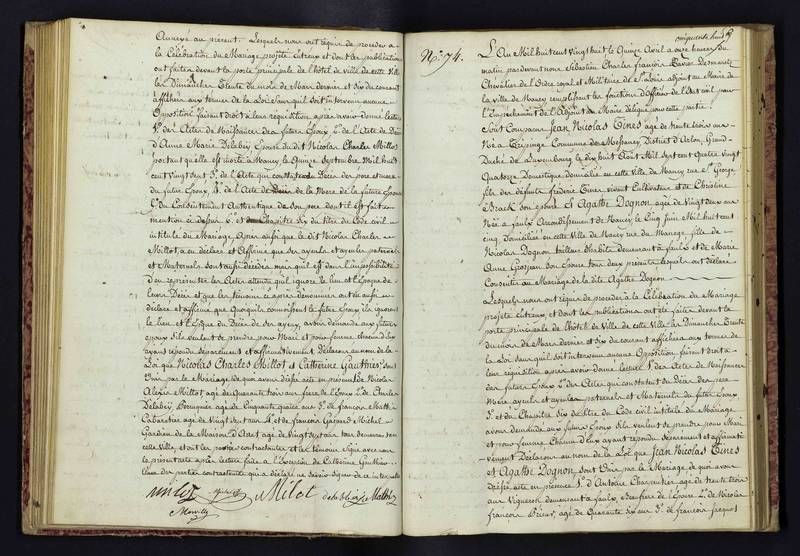 annexés au présent. Lesquels nous ont requis de procéder à
la Célébration du Mariage projetté entreux et dont les publications
ont été faites devant la porte principale de l'hôtel de ville de cette ville
les Dimanches Trente du mois de Mars dernier et six du courant
affichées aux termes de la Loi sans qu'il soit intervenu aucune
Opposition, faisant droit à leur réquisition après avoir donné lecture
1° des Actes de Naissance des futurs Epoux 2° de l'Acte de Décès
d'Anne Marie Delabey Epouse du dit Nicolas Charles Millot
portant qu'elle est morte à Nancy le Quinze Septembre Mil huit
Cent vingt sept 3° de l'Acte qui constate le Décès des pere et mere
du futur Epoux 4° de l'Acte de Décès de la Mere de la future Epouse
5° du Consentement Authentique de son pere dont il est fait
mention ci dessus 6° et du Chapitre Six du titre du Code civil
intitulé du Mariage. Après aussi que le dit Nicolas Charles
Millot, a eu déclaré et Affirmé que ses ayeuls et ayeules paternels
et Maternels sont aussi décédés mais qu'il est dans l'impossibilité
d'en représenter les Actes attendu qu'il ignore le lieu et l'Epoque de
leurs Décès et que les témoins ci après dénommés ont eu aussi
déclaré et affirmé que quoiqu'ils connoissent le futur Epoux ils ignorent
le lieu et l'Epoque du Décès de ses ayeux, avons demandé aux futurs
époux s'ils veulent se prendre pour Mari et pour femme chacun d'Eux
ayant répondu séparément et affirmativement Déclarons au nom de la
Loi que Nicolas Charles Millot et Catherine Gauthier sont
Unis par le Mariage, de quoi avons dressé acte en présence de Nicolas
Alexis Millot, agé de Quarante trois ans frere de l'Epoux 2° de Charles
Delabey, Perruquier agé de Cinquante quatre ans 3° de francois Mathis
Cabaretier agé de Vingt sept ans 4° et de francois Gaspard Michel
Gardien de la Maison d'Arrêt agé de Vingt sept ans tous demeurant en
cette Ville, et ont les parties contractantes et les témoins signé avec nous
le présent acte après lecture faite à l'exception de Catherine Gauthier
l'une des parties contractantes qui a déclaré ne savoir signer de ce interpellée
Millot
N° 74.
L'An Mil huit cent Vingt huit le Quinze Avril à onze heures du
matin pardevant nous Sébastien Charles francois Xavier Desmarets
Chevalier de l'Ordre royal et Militaire de St Louis adjoint au Maire de
la ville de Nancy remplissant les fonctions d'officier de l'Etat civil pour
l'Empêchement de l'Adjoint du Maire délégué pour cette partie.
Sont Comparus Jean Nicolas Tines agé de trente trois ans
Né à Commune de Messancy District d'Arlon, Grand
Duché de Luxembourg le dix huit Août Mil sept cent Quatre Vingt
Quatorze Domestique domicilié en cette ville de Nancy rue St George
fils des défunts fréderic Tines vivant Cultivateur et de Christine
Brack son épouse Et Agathe Dognon agée de Vingt deux ans
Née à faulx Arrondissement de Nancy le Cinq Juin Mil huit cent
cinq, Domiciliée en cette Ville de Nancy rue du Manege, fille de
Nicolas Dognon tailleur d'habits demeurant à faulx et de Marie
Anne Grosjean son Epouse tous deux présents lesquels ont déclaré
Consentir au Mariage de la dite Agathe Dognon
Lesquels nous ont requis de procéder à la Célébration du Mariage
projetté entreux, et dont les publications ont été faites devant la
porte principale de l'hôtel de Ville de cette Ville les Dimanches Trente
du mois de Mars dernier et six du courant affichées aux termes de
la Loi sans qu'il soit intervenu aucune Opposition, faisant droit à
leur réquisition après avoir donné lecture 1° des Actes de Naissance
des futurs Epoux 2° des Actes qui constatent du Décès des pere
Mere ayeuls et ayeules paternels et Maternels du futur Epoux
3° et du Chapitre Six du titre du Code civil intitulé du Mariage
avons demandé aux futurs Epoux s'ils veulent se prendre pour Mari
et pour femme Chacun d'Eux ayant répondu séparément et affirmati-
vement Déclarons au nom de la Loi que Jean Nicolas Tines
et Agathe Dognon sont Unis par le Mariage de quoi avons
dressé acte en présence 1° d'Antoine Charpentier agé de trente trois
ans Vigneron demeurant à faulx, Beaufrere de l'Epouse 2° de Nicolas
francois Prieur, agé de Quarante Six ans 3° de francois Jacques